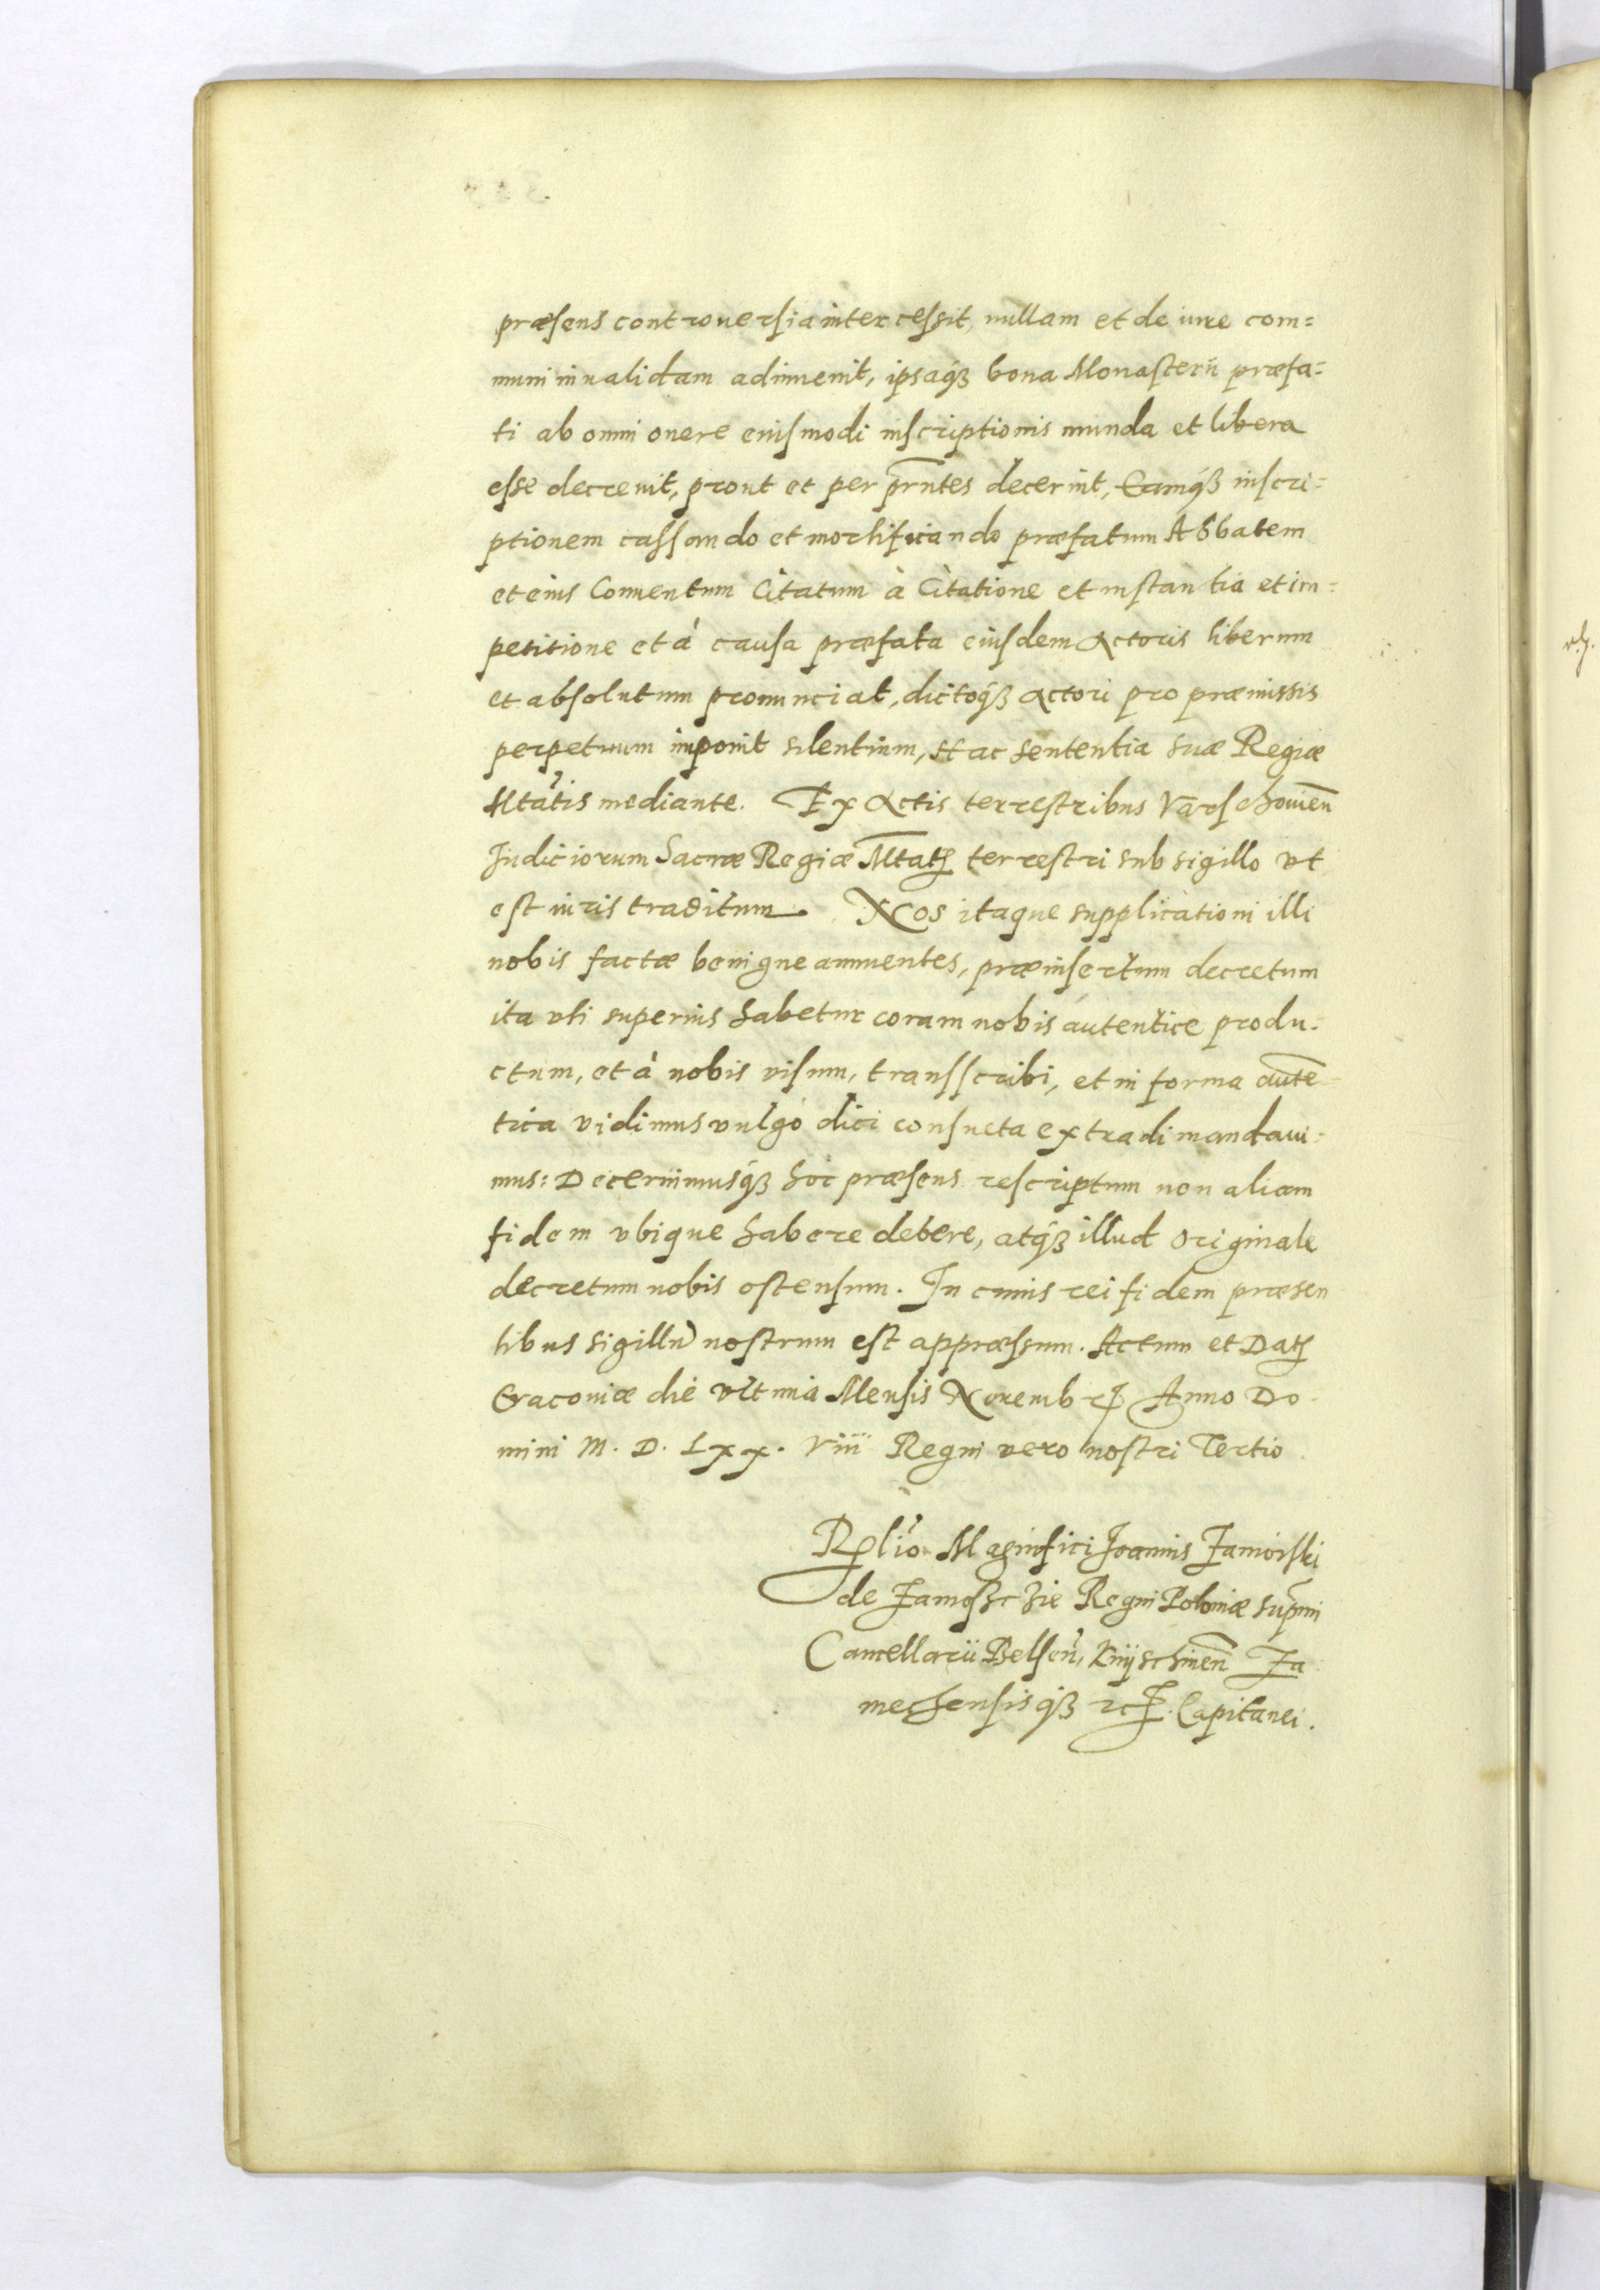 præsens controuersia intercessit, nullam et de iure com=
muni inualidam adinuenit, ipsaq́ꝫ bona Monasterii præfa=
ti ab omni onere eiusmodi inscriptionis munda et libera
esse decreuit, prout et per prñtes decernit, Eamq́ꝫ inscri=
ptionem cassando et mortificando præfatum Abbatem
et eius Conuentum Citatum à Citatione et instantia et im=
petitione et à causa præfata eiusdem Actoris liberum
et absolutum pronunciat, dictoq́ꝫ Actori pro præmissis
perpetuum imponit silentium, Hac sententia suæ Regiæ
Mtãtis mediante. Ex Actis terrestribus Varschouien̄
Iudiciorum Sacræ Regiæ Mtatꝭ terrestri sub sigillo vt
est iuris traditum. Nos itaque supplicationi illi
nobis factæ benigne annuentes, præinsertum decretum
ita vti superius habetur coram nobis autentice produ=
ctum, et à nobis visum, transscribi, et in forma auten̄=
tica vidimus vulgò dici consueta extradi mandaui=
mus: Decernimusq́ꝫ hoc præsens rescriptum non aliam
fidem vbique habere debere, atq́ꝫ illud originale
decretum nobis ostensum. In cuius rei fidem præsen
tibus sigillũ nostrum est appræssum. Actum et Datꝭ
Cracouiæ die vltima Mensis Nouembrꝭ Anno Do=
mini M. D. Lxx. viii Regni vero nostri Tertio
Relio Magnifici Joannis Zamoiski
de Zamosczie Regni Poloniæ supmi
Cancellarii Belsen̄, Knÿschinen̄ Za
mechensisq́ꝫ rcꝭ. Capitanei.